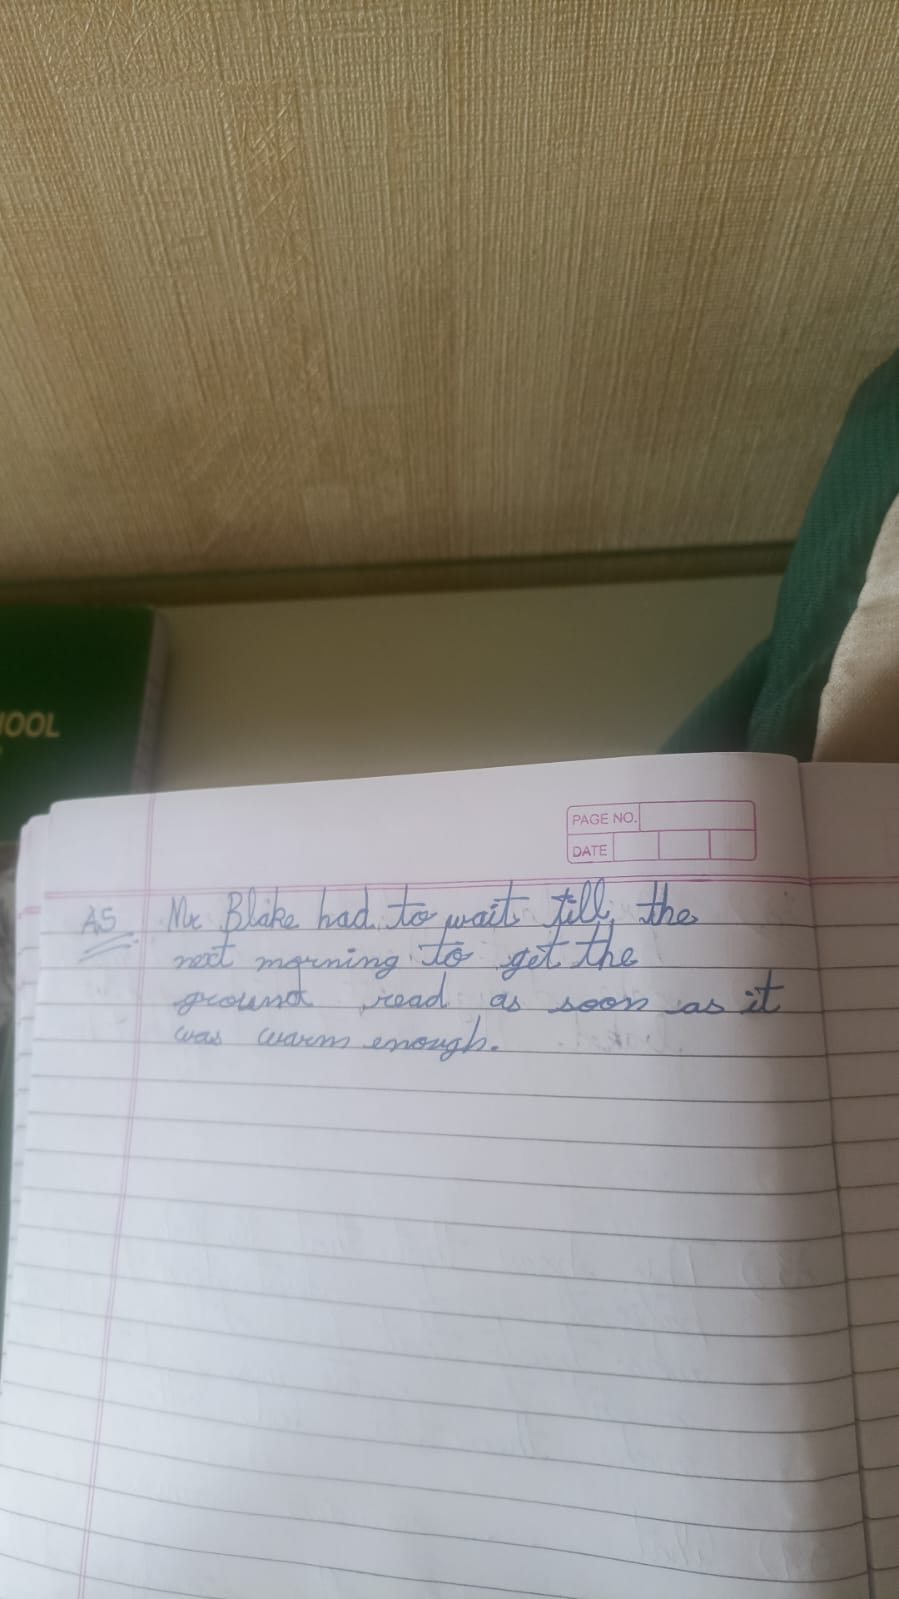 HOOL
PAGE NO.
DATE
A5 Mr Blake had to wait till the
next morning to get the
ground read as soon as it
was warm enough.